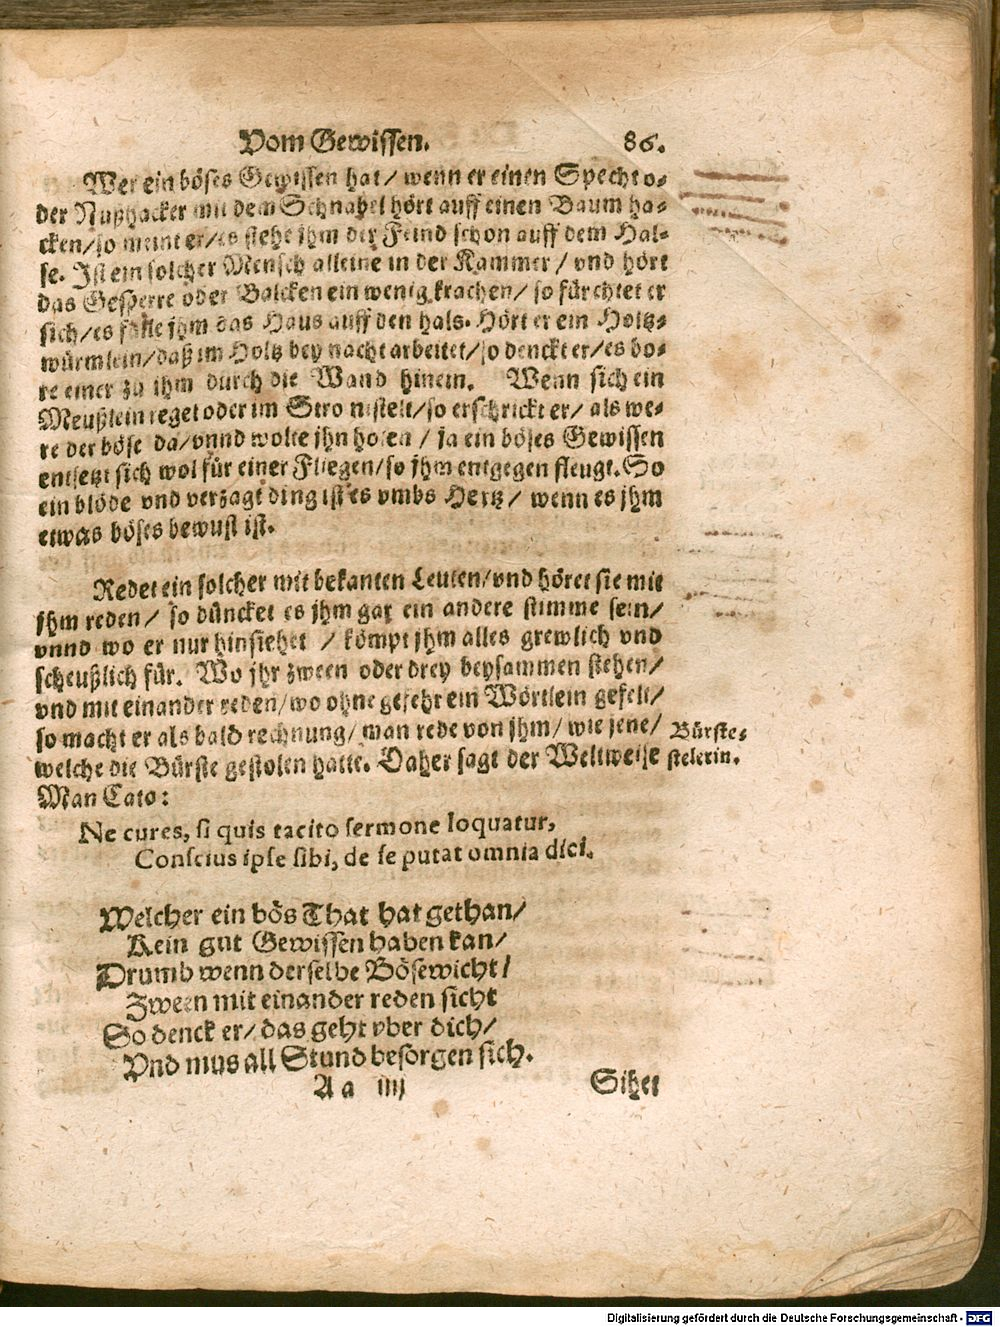 Vom Gewissen. 86.
Wer ein böses Gewissen hat/ wenn er einen Specht o-
der Nußhacker mit dem Schnabel hört auff einen Baum ha-
cken/ so meint er/ es stehe jhm der Feind schon auff dem Hal-
se. Ist ein solcher Mensch alleine in der Kammer/ vnd hört
das Gesperre oder Balcken ein wenig krachen/ so fürchtet er
sich/ es falle jhm das Haus auff den hals. Hört er ein Holtz-
würmlein/ daß im Holtz bey nacht arbeitet/ so denckt er/ es bo-
re einer zu ihm durch die Wand hinein. Wenn sich ein
Meußlein reget oder im Stro nistelt/ so erschrickt er/ als we-
re der böse da/ vnnd wolte jhn holen/ ja ein böses Gewissen
entsetzt sich wol für einer Fliegen/ so jhm entgegen fleugt. So
ein blöde vnd verzagt ding ist es vmbs Hertz/ wenn es jhm
etwas böses bewust ist.
Redet ein solcher mit bekanten Leuten/ vnd höret sie mit
jhm reden/ so düncket es jhm gar ein andere stimme sein/
vnnd wo er nur hinsiehet/ kömpt jhm alles grewlich vnd
scheußlich für. Wo jhr zween oder drey beysammen stehen/
vnd mit einander reden/ wo ohne gefehr ein Wörtlein gefelt/
so macht er als bald rechnung/ man rede von jhm/ wie jene/
welche die Bürste gestolen hatte. Daher sagt der Weltweise
Man Cato:
Bürste-
stelerin.
Ne cures, si quis tacito sermone loquatur,
Conscius ipse sibi, de se putat omnia dici.
Welcher ein bös That hat gethan/
Kein gut Gewissen haben kan/
Drumb wenn derselbe Bösewicht/
Zween mit einander reden sicht
So denck er/ das geht vber dich/
Vnd mus all Stund besorgen sich.
Aa iiij Sihet
Digitalisierung gefördert durch die Deutsche Forschungsgemeinschaft - DFG